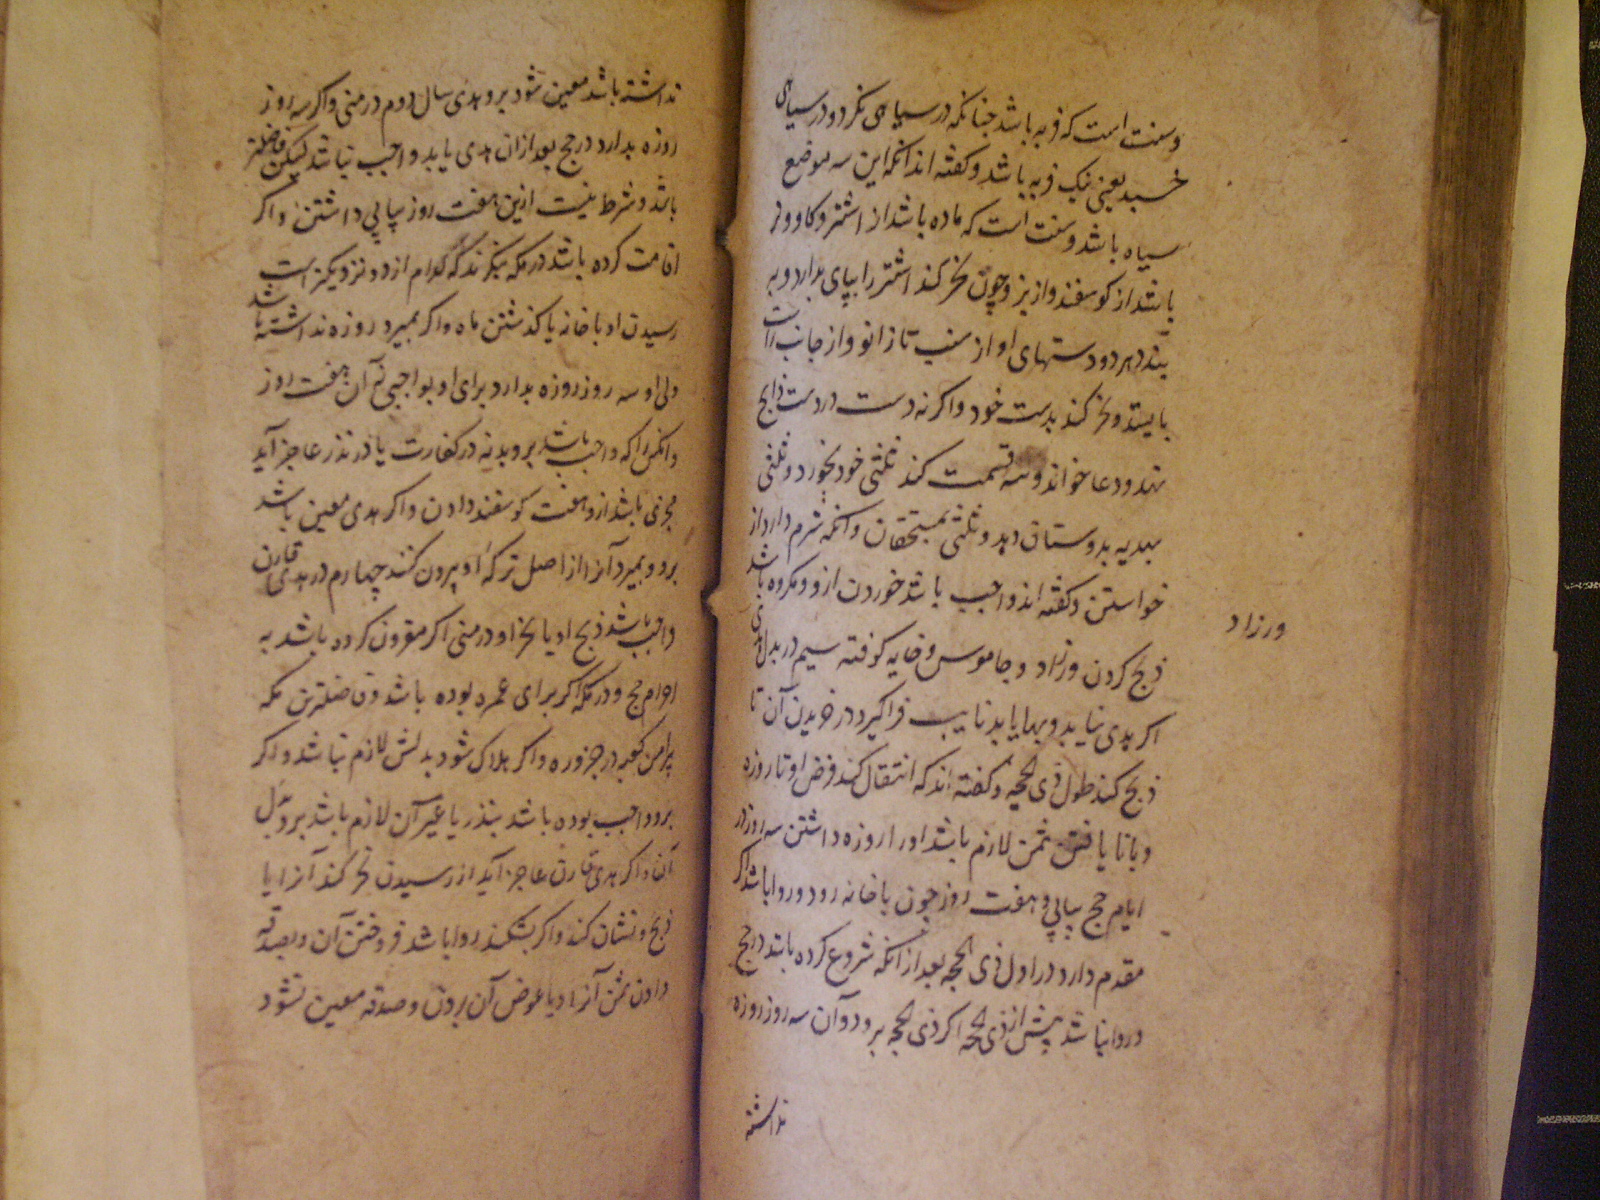 وسنت است که فربه باشد چنانکه در سیاهی نکرد و در سیاهی
خسبد یعنی نیک فربه باشد و گفته اند انکه این سه موضع
سیاه باشد و سنت است که ماده باشد از اشتر و کاو و نر
باشد از کوسفند و از بز و چون نحر کند اشتر را بپای بدارد و به
بندد هر دو دستهای او از سنب تا زانو و از جانب راست
بایستد و نحر کند بدست خود و اکر نه دست در دست ذابح
نهد و دعا خواند و سه قسمت کند ثلثی خود بخورد و ثلثی
بهدیه بدوستان دهد و ثلثی بمستحقان و انکه شرم دارد از
خواستن و گفته اند واجب باشد خوردن ازو و مکروه باشد
ذبح کردن ورزاد و جاموس و خایه کوفته سیم در بدل هدی
ورزاد
اکر هدی نیابد و بها یابد نایب فراکیرد در خریدن آن تا
ذبح کند طول ذی الحجه و کفته اند که انتقال کند فرض او تا روزه
و با نا یافتن ثمن لازم باشد او را روزه داشتن سه روز در
ایام حج پیاپی و هفت روز چون با خانه رود و روا باشد اکر
مقدم دارد در اول ذی الحجه بعد از انکه شروع کرده باشد در حج
و روا نباشد پیش از ذی الحجه اکر ذی الحجه برود و آن سه روز روزه
نداشته
نداشته باشد معین شود برو هدی سال دوم در منی و اکر سه روز
روزه بدارد در حج بعد ازان هدی یابد واجب نباشد لیکن فاضلتر
باشد و شرط نیست ازین هفت روز پیاپی داشتن و اکر
اقامت کرده باشد در مکه بنکرند که کدام از دو نزدیکتر است
رسیدن او با خانه یا کذشتن ماه و اکر بمیرد و روزه نداشته باشد
ولی او سه روز روزه بدارد برای او بواجبی نه آن هفت روز
و انکس را که واجب باشد برو بدنه در کفارت یا در نذر عاجز آید
مجزی باشد ازو هفت کوسفند دادن و اکر هدی معین باشد
برو و بمیرد آنرا از اصل ترکه او بیرون کنند چهارم در هدی قارن
واجب باشد ذبح او یا نحر او در منی اکر مقرون کرده باشد به
احرام حج و در مکه اکر برای عمره بوده باشد و فاضلترین مکه
پیرامن کعبه در جزوره و اکر هلاک شود بدلش لازم نباشد و اکر
برو واجب بوده باشد بنذر یا غیر آن لازم باشد برو بدل
آن و اکر هدی قارن عاجز آید از رسیدن نحر کند آنرا یا
ذبح و نشان کند و اکر بشکند روا باشد فروختن آن و بصدقه
دادن ثمن آنرا و یا عوض آن بردن و صدقه معین نشود